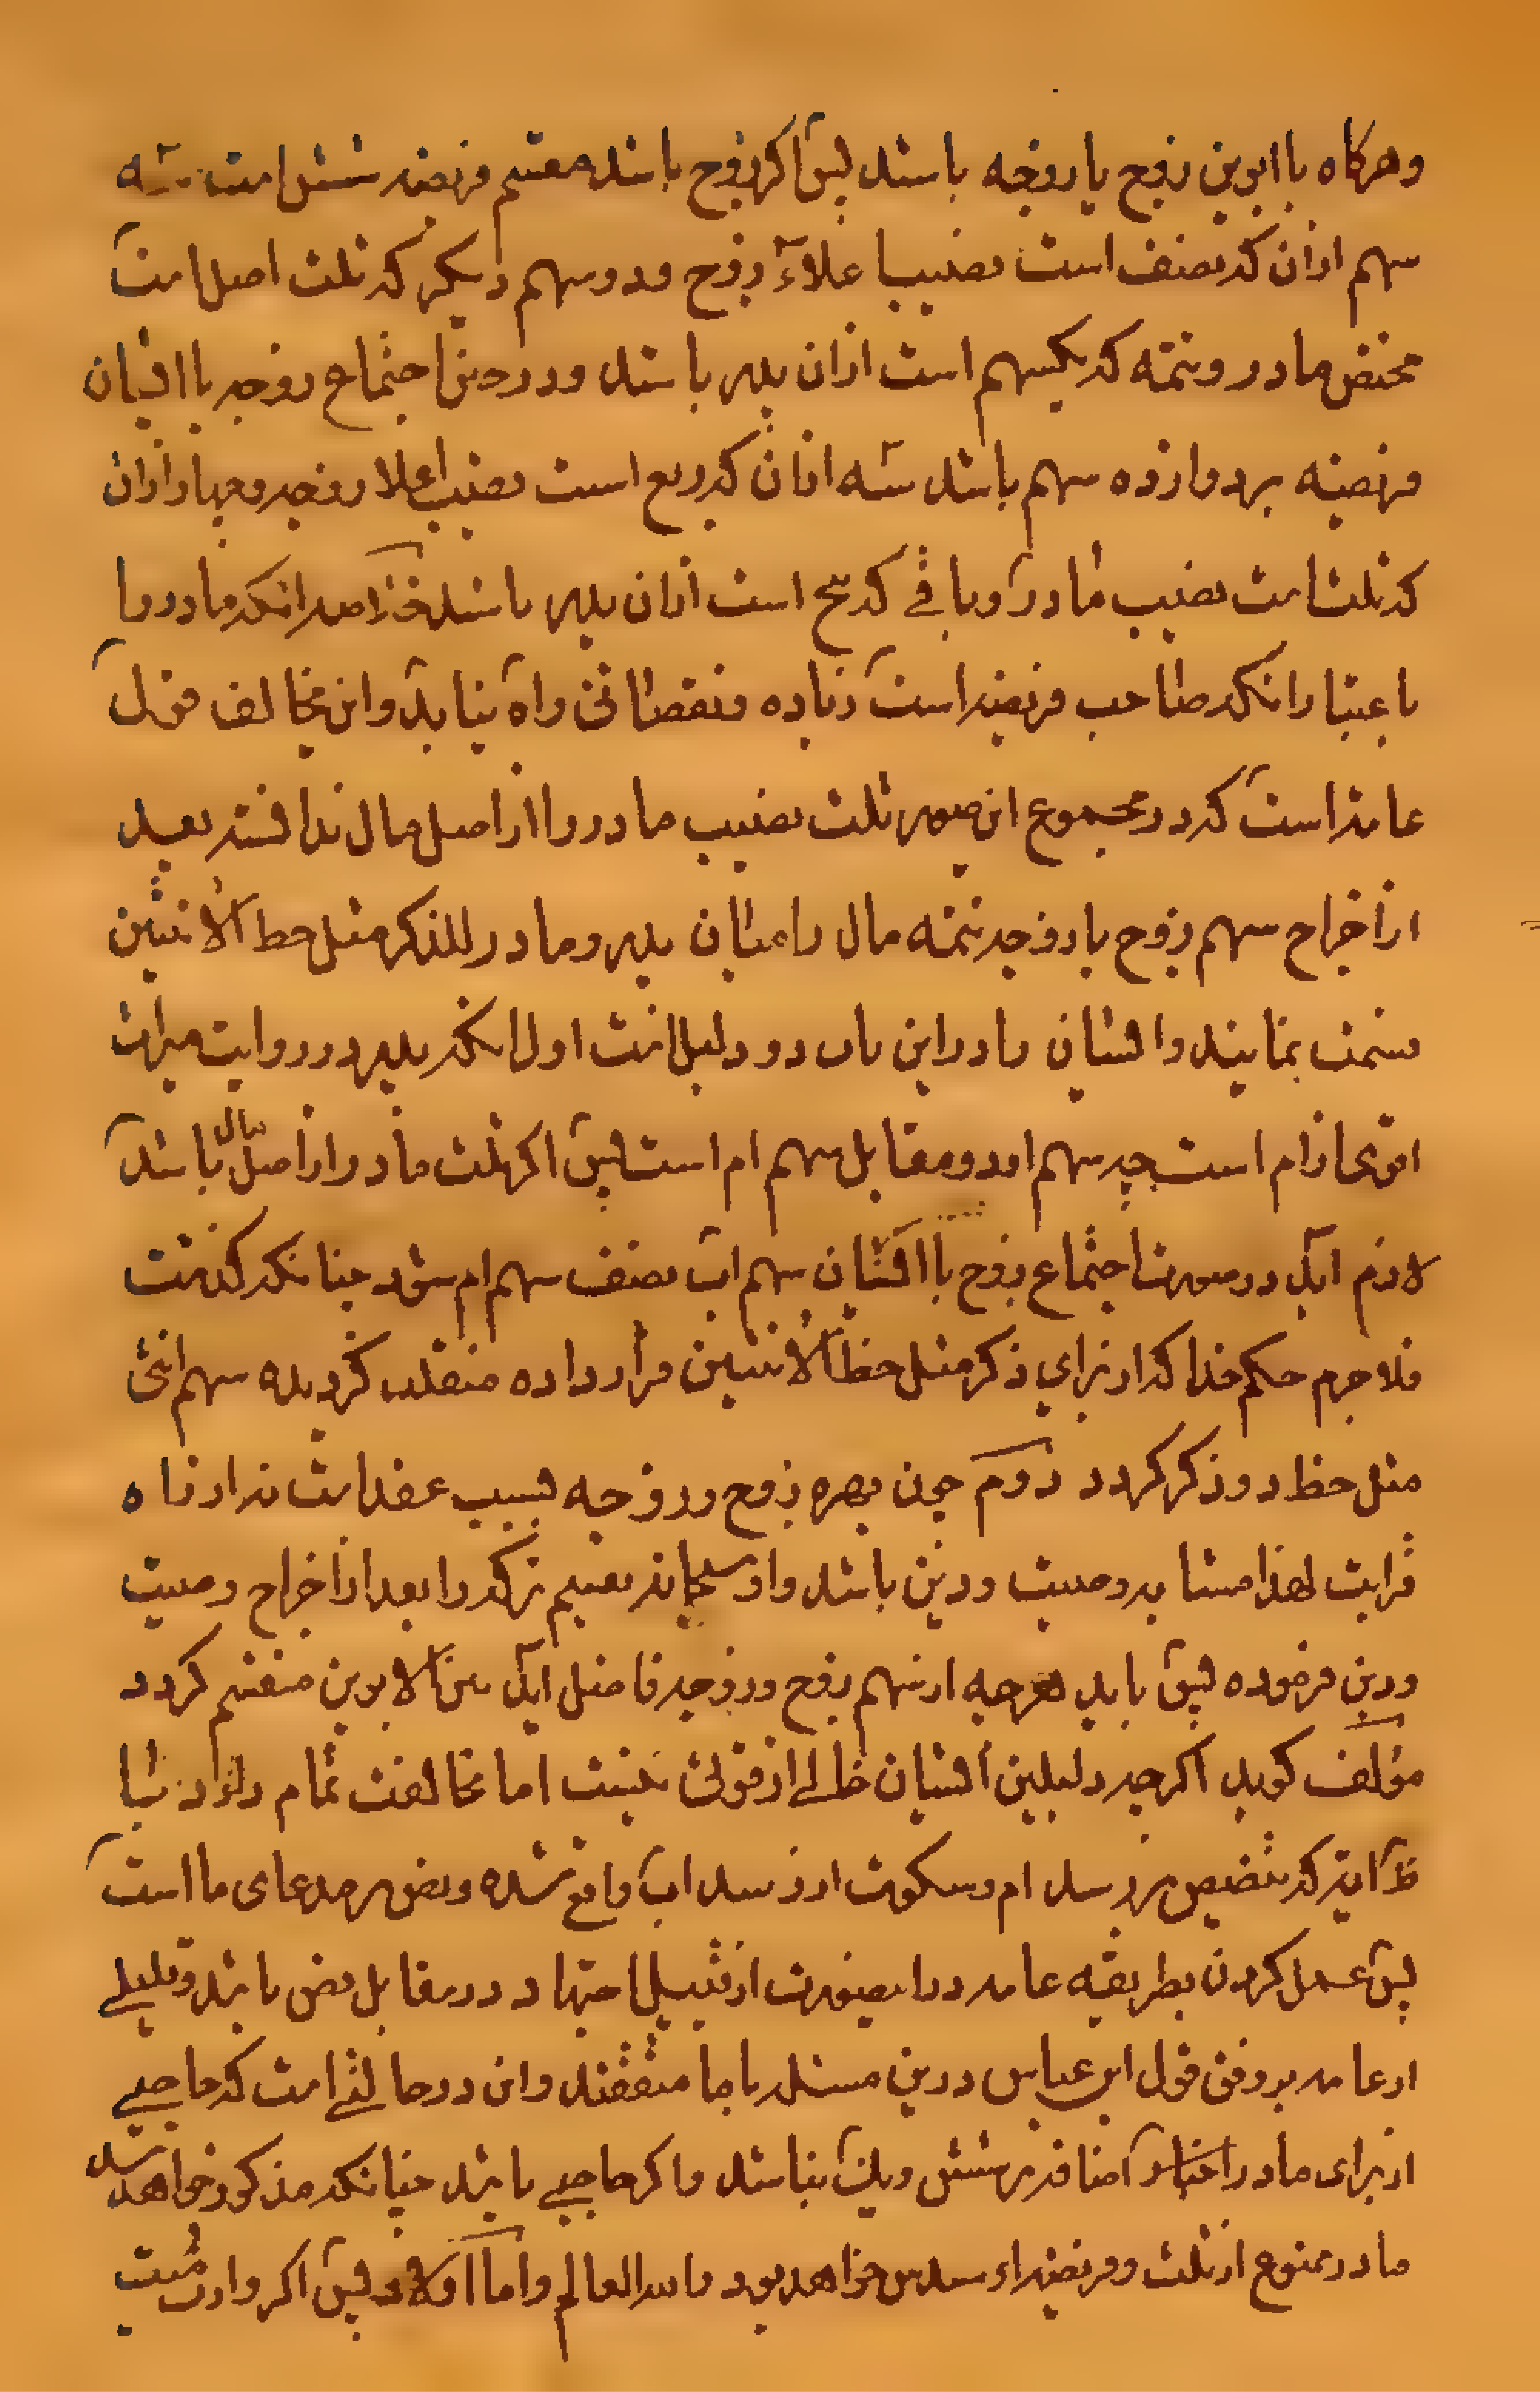 وهرگاه با ابوین زوج یا زوجه باشد پس اگر زوج باشد مقسم فریضه شش است سه
سهم ازان که نصف است نصیب اعلاء زوج ودو سهم دیگر که ثلث اصل است
مختص مادر و تتمه که یکسهم است ازان پدر باشد ودر حین اجتماع زوجه با ایشان
فریضه بر دوازده سهم باشد سه ازان که ربع است نصیب اعلا زوجه وچهار ازان
که ثلث است نصیب مادر وباقی که پنج است ازان پدر باشد خلاصه انکه مادر را
باعتبار انکه صاحب فریضه است زیاده ونقصانی راه نیابد واین مخالف قول
عامه است که در مجموع این صور ثلث نصیب مادر را از اصل مال ندانسته بعد
از اخراج سهم زوج یا زوجه تتمه مال را میان پدر ومادر للذکر مثل حظ الانثیین
قسمت نمایند وایشان را درین باب دو دلیل است اول انکه پدر در روایت میراث
اقوی از ام است چه سهم او دو مقابل سهم ام است پس اگر ثلث مادر از اصل مال باشد
لازم اید در صورت اجتماع زوج با ایشان سهم اب نصف سهم ام شود چنانکه گذشت
فلاجرم حکم خدا که از برای ذکر مثل حظ الانثیین قرار داده منقلب گردیده سهم انثی
مثل حظ دو ذکر گردد دوم چون بهره زوج وزوجه بسبب عقد است نه از راه
قرابت لهذا مشابه وصیت ودین باشد واو سبحانه تقسیم ترکه را بعد از اخراج وصیت
ودین فرموده پس باید هرچه از سهم زوج وزوجه فاضل اید بین الابوین منقسم گردد
مؤلف گوید اگرچه دلیلین ایشان خالی از قوتی نیست اما مخالفت تمام دارد با
ظ آیه که تنصیص بر سدس ام وسکوت از سدس اب واقع شده ونص بر مدعای ما است
پس عمل کردن بطریقه عامه درینصورت از قبیل اجتهاد در مقابل نص باشد وقلیلی
از عامه بر وفق قول ابن عباس درین مسئله با ما متفقند واین در حالتی است که حاجبی
از برای مادر اضافه بر شش ویک نباشد واگر حاجبی باشد چنانکه مذکور خواهد شد
مادر ممنوع از ثلث وفریضه او سدس خواهد بود والله العالم واما اولاد پس اگر وارث میت